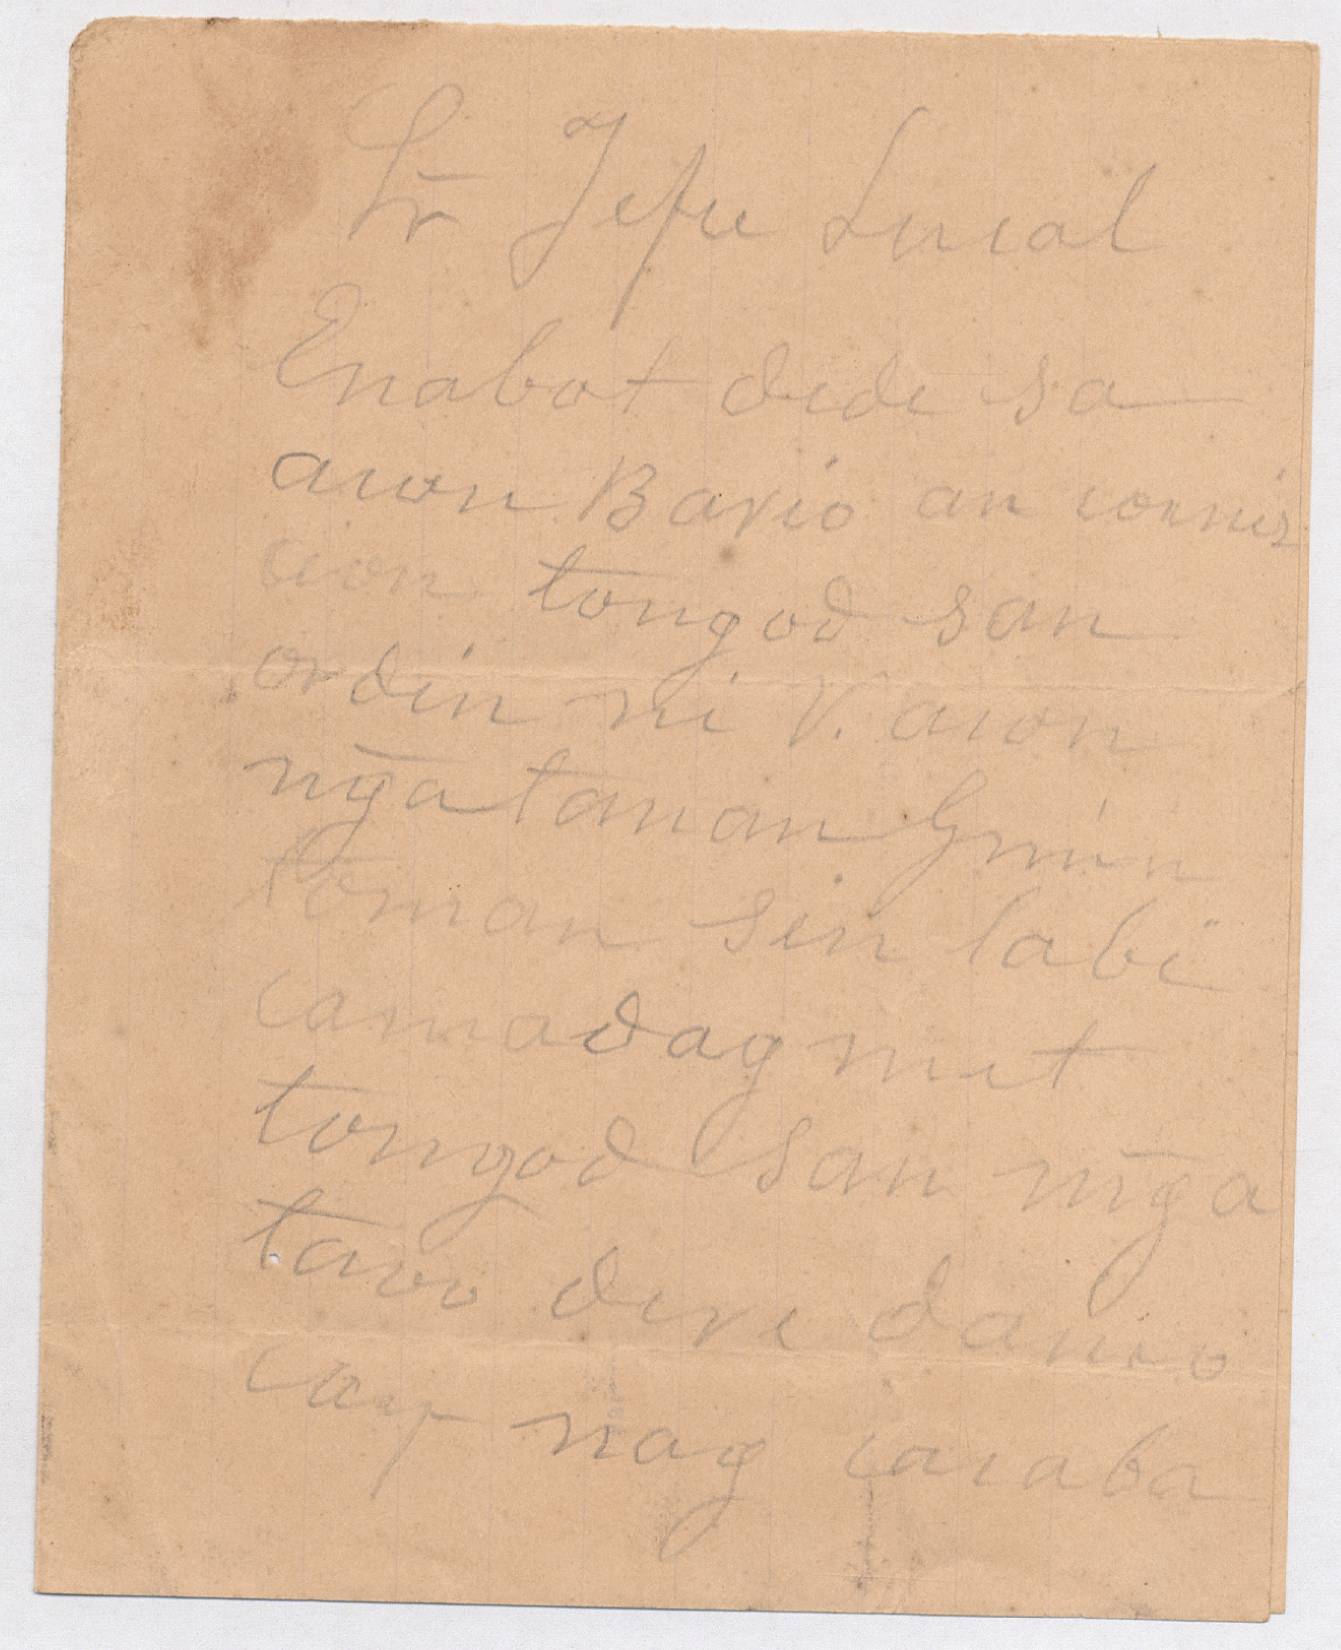 Sr Jefe Lucal
Enabot dede sa
acon Bario an comis
cion tongod san
ordin ni V. acon
nga tanan Gin
toman sin labi
camadag met
tongod san mga
tavo dere danio
cay nag cacaba